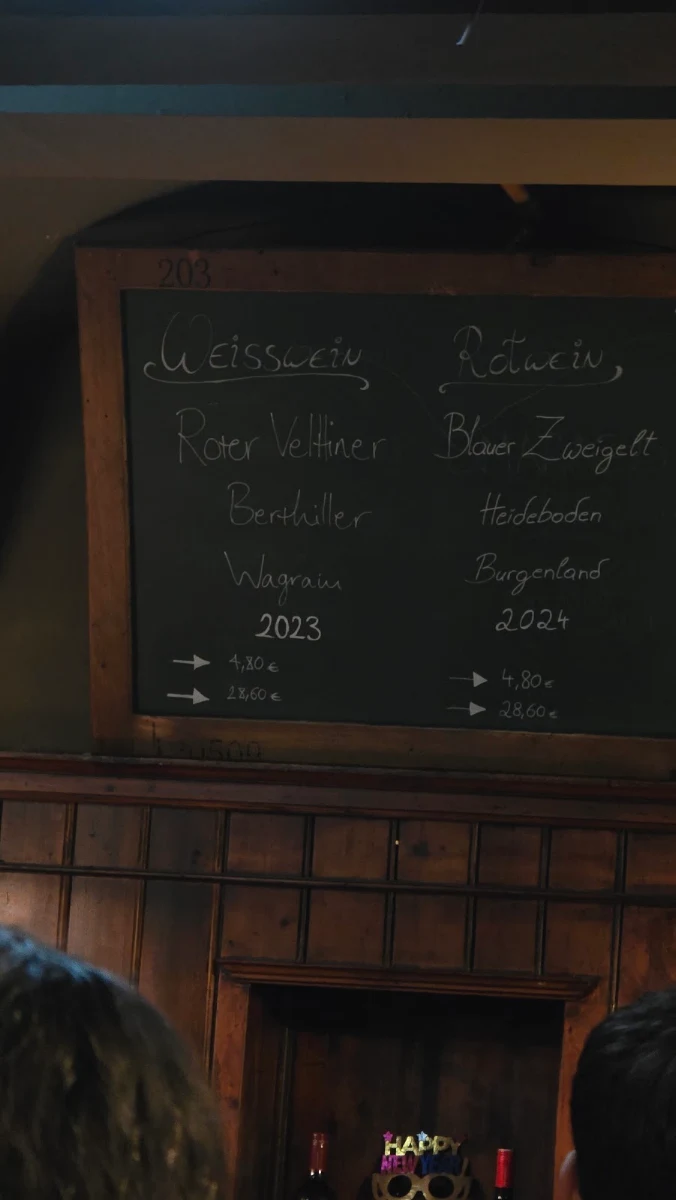 203
Weisswein
Roter Veltliner
Berthiller
Wagram
2023
→ 4,80 €
→ 28,60 €
Rotwein
Blauer Zweigelt
Heideboden
Burgenland
2024
→ 4,80 €
→ 28,60 €
HAPPY
NEW YEAR